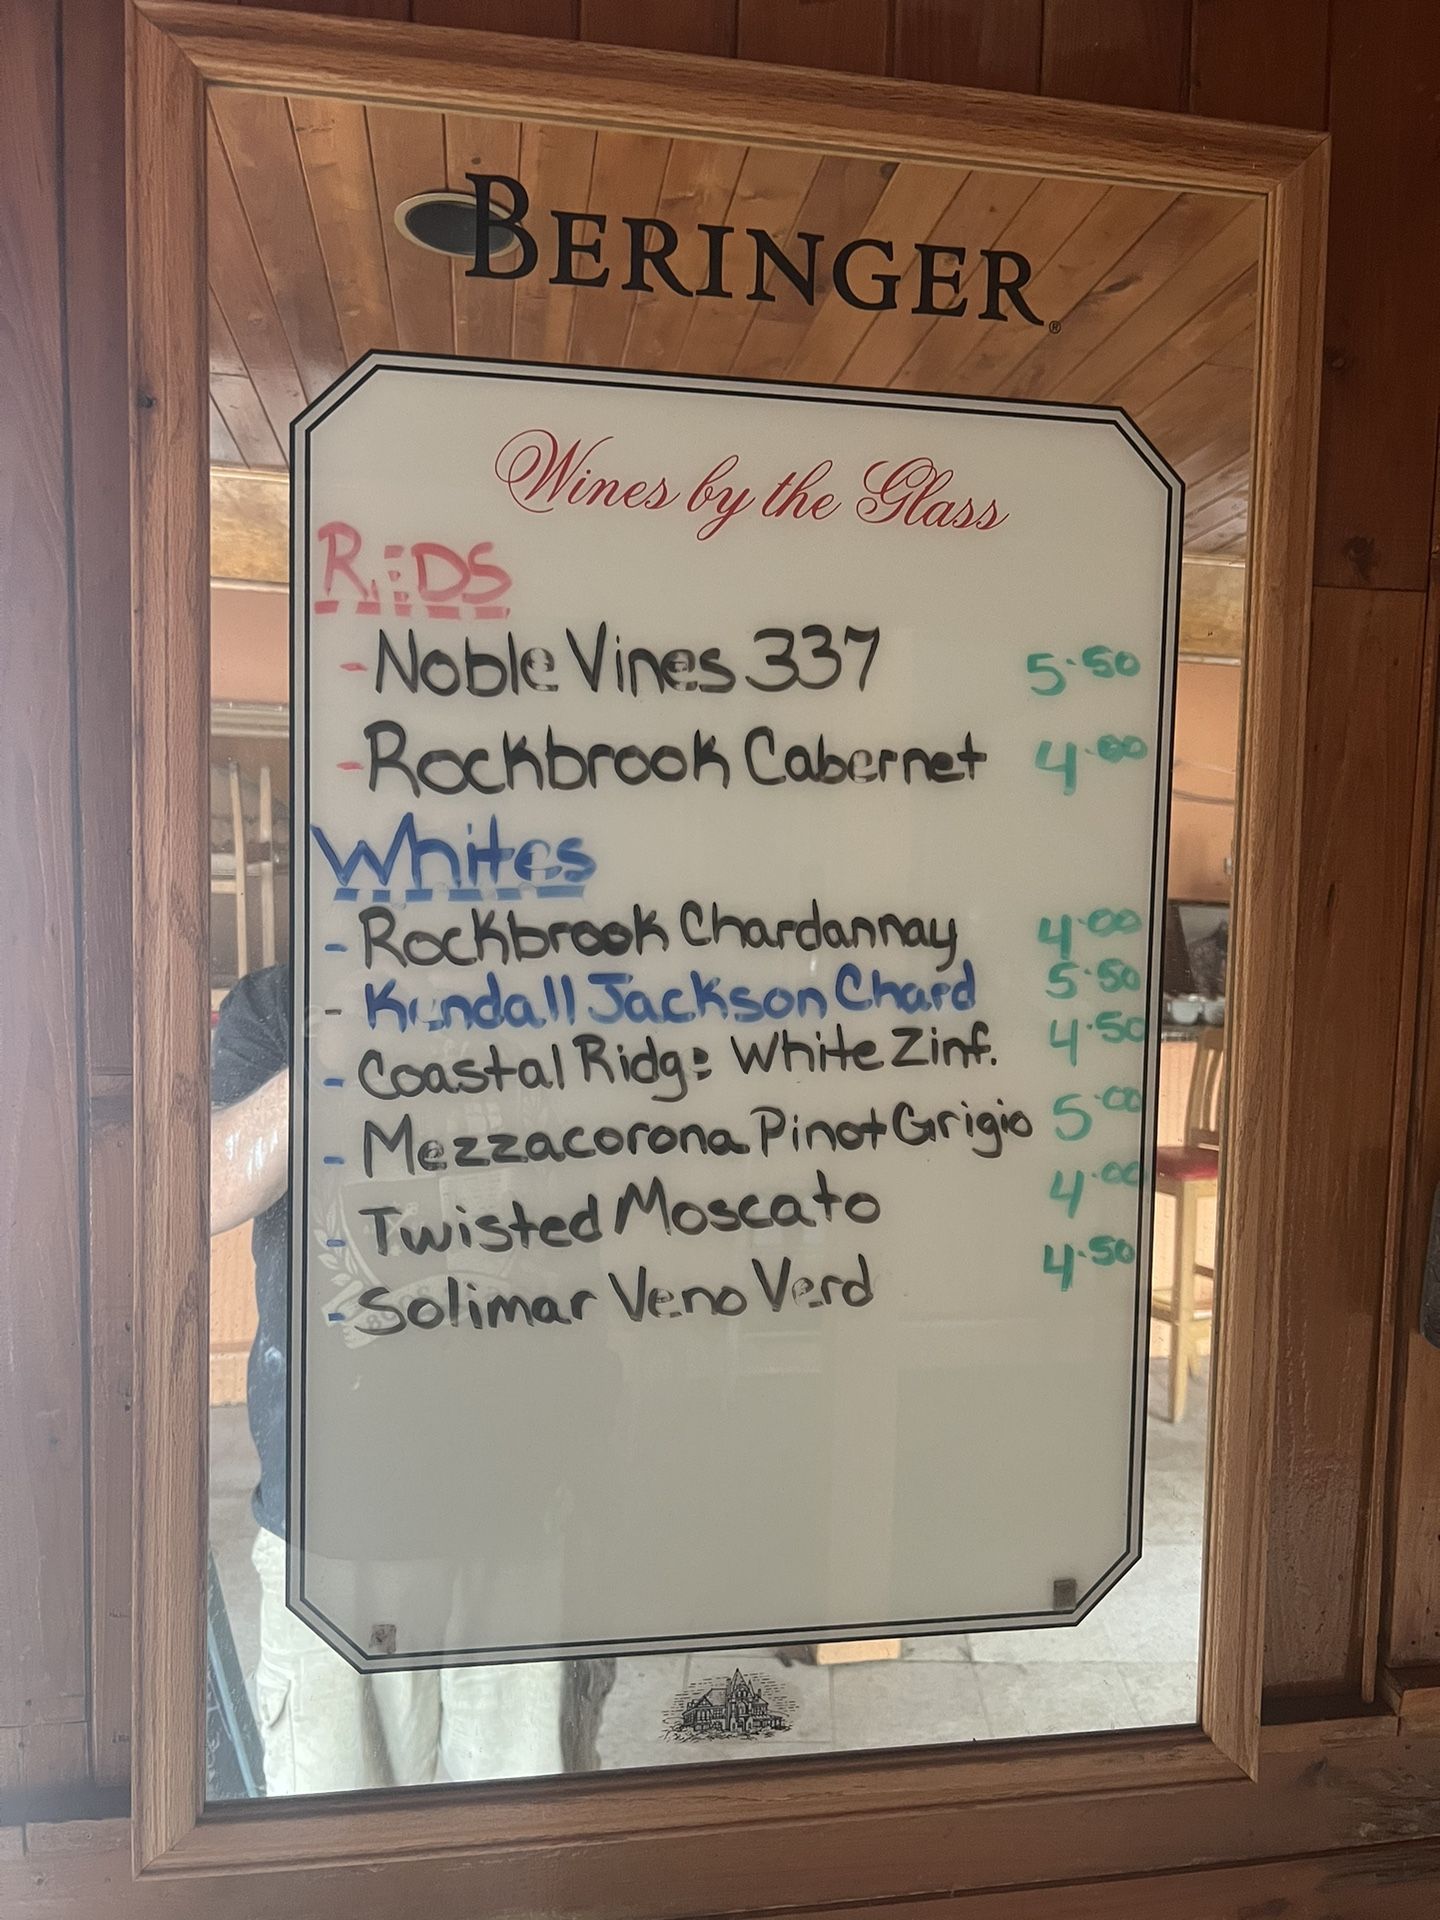 BERINGER®
Wines by the Glass
REDS
-Noble Vines 337 5.50
-Rockbrook Cabernet 4.00
Whites
-Rockbrook Chardannay 4.00
-Kendall Jackson Chard 5.50
-Coastal Ridge White Zinf. 4.50
-Mezzacorona Pinot Grigio 5.00
-Twisted Moscato 4.00
-Solimar Veno Verd 4.50